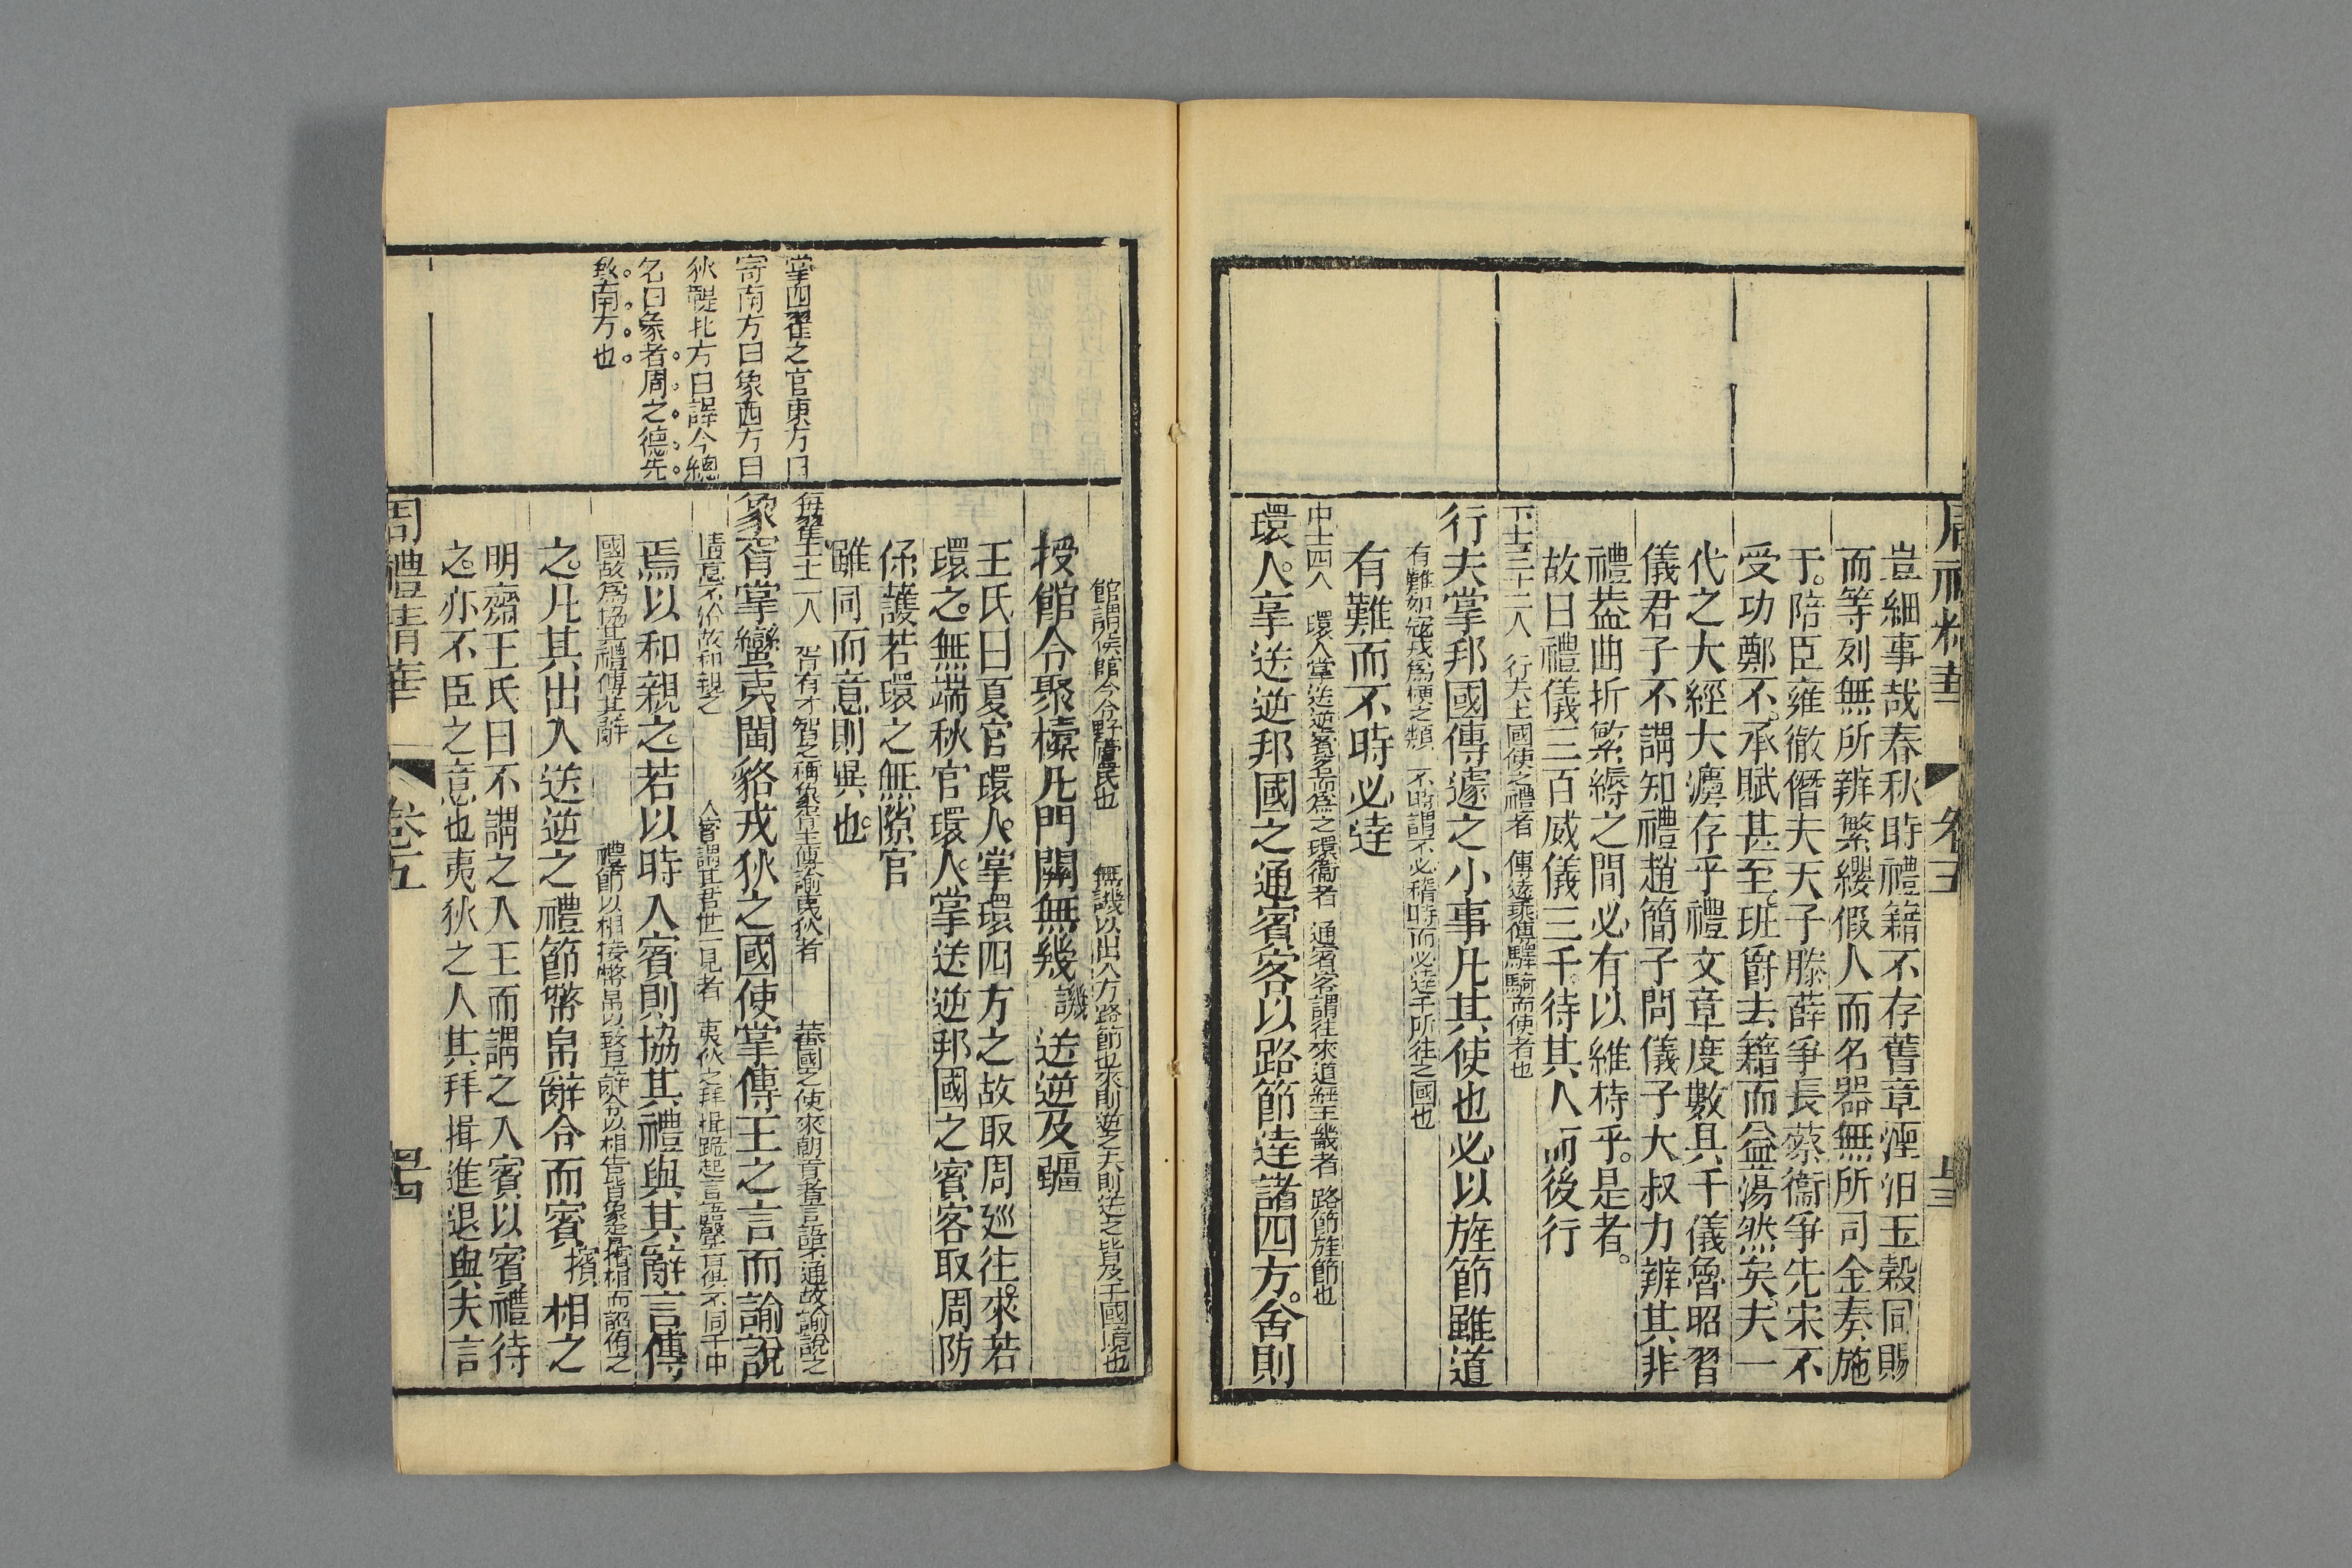 豈細事哉春秋時禮籍不存舊章湮汨玉穀同賜
而等列無所辨繁纓假人而名器無所司金奏施
于陪臣雍徹僭夫天子滕薛爭長蔡衞爭先宋不
受功鄭不承賦甚至班爵去籍而益蕩然矣夫一
代之大經大灋存乎禮文章度數具千儀魯昭習
儀君子不謂知禮趙簡子問儀子大叔力辨其非
禮葢曲折繁縟之間必有以維持乎是者
故曰禮儀三百威儀三千待其人而後行
下士三十二人 行夫主國使之禮者 傳遽乗傳驛騎而使者也
行夫掌邦國傳遽之小事凡其使也必以旌節雖道
有難如寇戎為梗之類 不時謂不必稽時而必逹于所往之國也
有難而不時必逹
中士四人 環人掌送逆賓客而為之環衞者 通賓客謂往來道經王畿者 路節旌節也
環人掌送逆邦國之通賓客以路節逹諸四方舍則
館謂候館令令野廬氏也 無譏以出入方路節也來則逆之去則送之皆及于國境也
授館令聚㯓凡門關無幾譏送逆及疆
王氏曰夏官環人掌環四方之故取周廵往來若
環之無端秋官環人掌送逆邦國之賓客取周防
保護若環之無隙官
雖同而意則異也
掌四翟之官東方曰
寄南方曰象西方曰
狄鞮北方曰譯今總
名曰象者周之德先
致南方也
每翟上士一人 胥有才智之稱象胥主傳諭夷狄者 蕃國之使來朝首者言語不通故諭說之
象胥掌蠻夷閩貉戎狄之國使掌傳王之言而諭說
情意不洽故和親之 入賓謂其君世一見者 夷狄之拜揖跪起言語聲音俱不同于中
焉以和親之若以時入賓則協其禮與其辭言傳
國故為協其禮傳其辭 禮節以相接幣帛以致見辭令以相告皆象胥擯相而詔侑之
之凡其出入送逆之禮節幣帛辭令而賓擯相之
明齋王氏曰不謂之入王而謂之入賓以賓禮待
之亦不臣之意也夷狄之人其拜揖進退與夫言
周禮精華 卷五